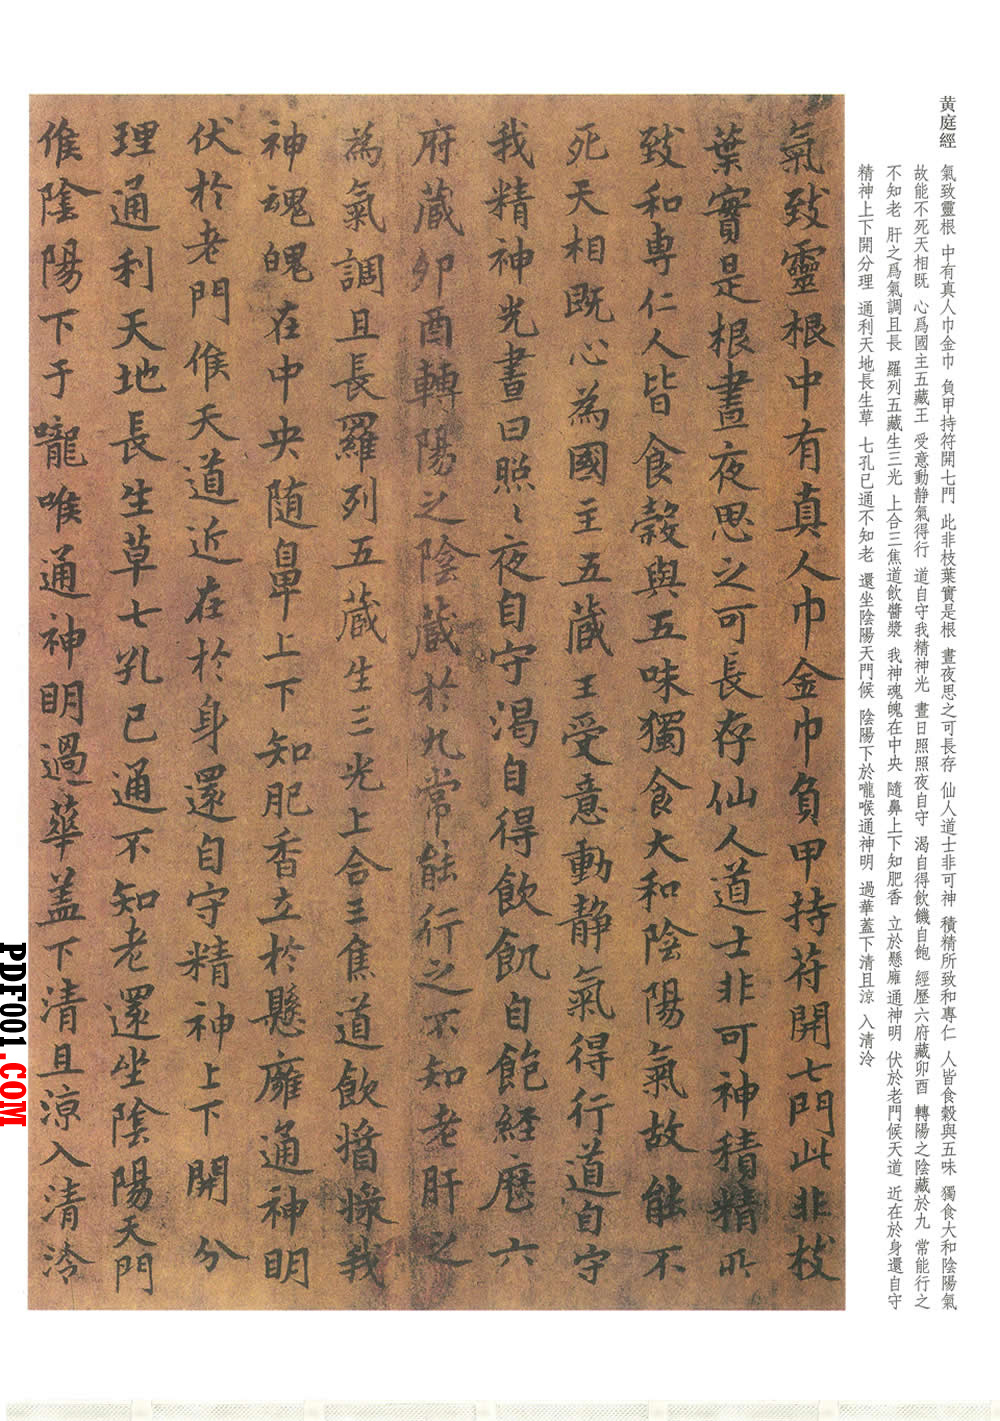 黄庭經
氣致靈根 中有真人巾金巾 負甲持符開七門 此非枝葉實是根 晝夜思之可長存 仙人道士非可神 積精所致和專仁 人皆食穀與五味 獨食大和陰陽氣
故能不死天相既 心爲國主五藏王 受意動静氣得行 道自守我精神光 晝日照照夜自守 渴自得飲饑自飽 經歷六府藏卯酉 轉陽之陰藏於九 常能行之
不知老 肝之爲氣調且長 羅列五藏生三光 上合三焦道飲醬漿 我神魂魄在中央 隨鼻上下知肥香 立於懸廱通神明 伏於老門候天道 近在於身還自守
精神上下開分理 通利天地長生草 七孔已通不知老 還坐陰陽天門候 陰陽下於嚨喉通神明 過華蓋下清且涼 入清泠
氣致靈根中有真人巾金巾負甲持苻開七門此非枝
葉實是根晝夜思之可長存仙人道士非可神積精所
致和専仁人皆食穀與五味獨食大和陰陽氣故能不
死天相既心為國主五藏王受意動静氣得行道自守
我精神光晝日照〻夜自守渴自得飲飢自飽経歷六
府藏卯酉轉陽之陰藏於九常能行之不知老肝之
為氣調且長羅列五藏生三光上合三焦道飲醬漿我
神魂魄在中央随鼻上下知肥香立於懸廱通神明
伏於老門候天道近在於身還自守精神上下開分
理通利天地長生草七孔已通不知老還坐陰陽天門
候陰陽下于嚨喉通神明過華盖下清且涼入清泠
PDF001.COM